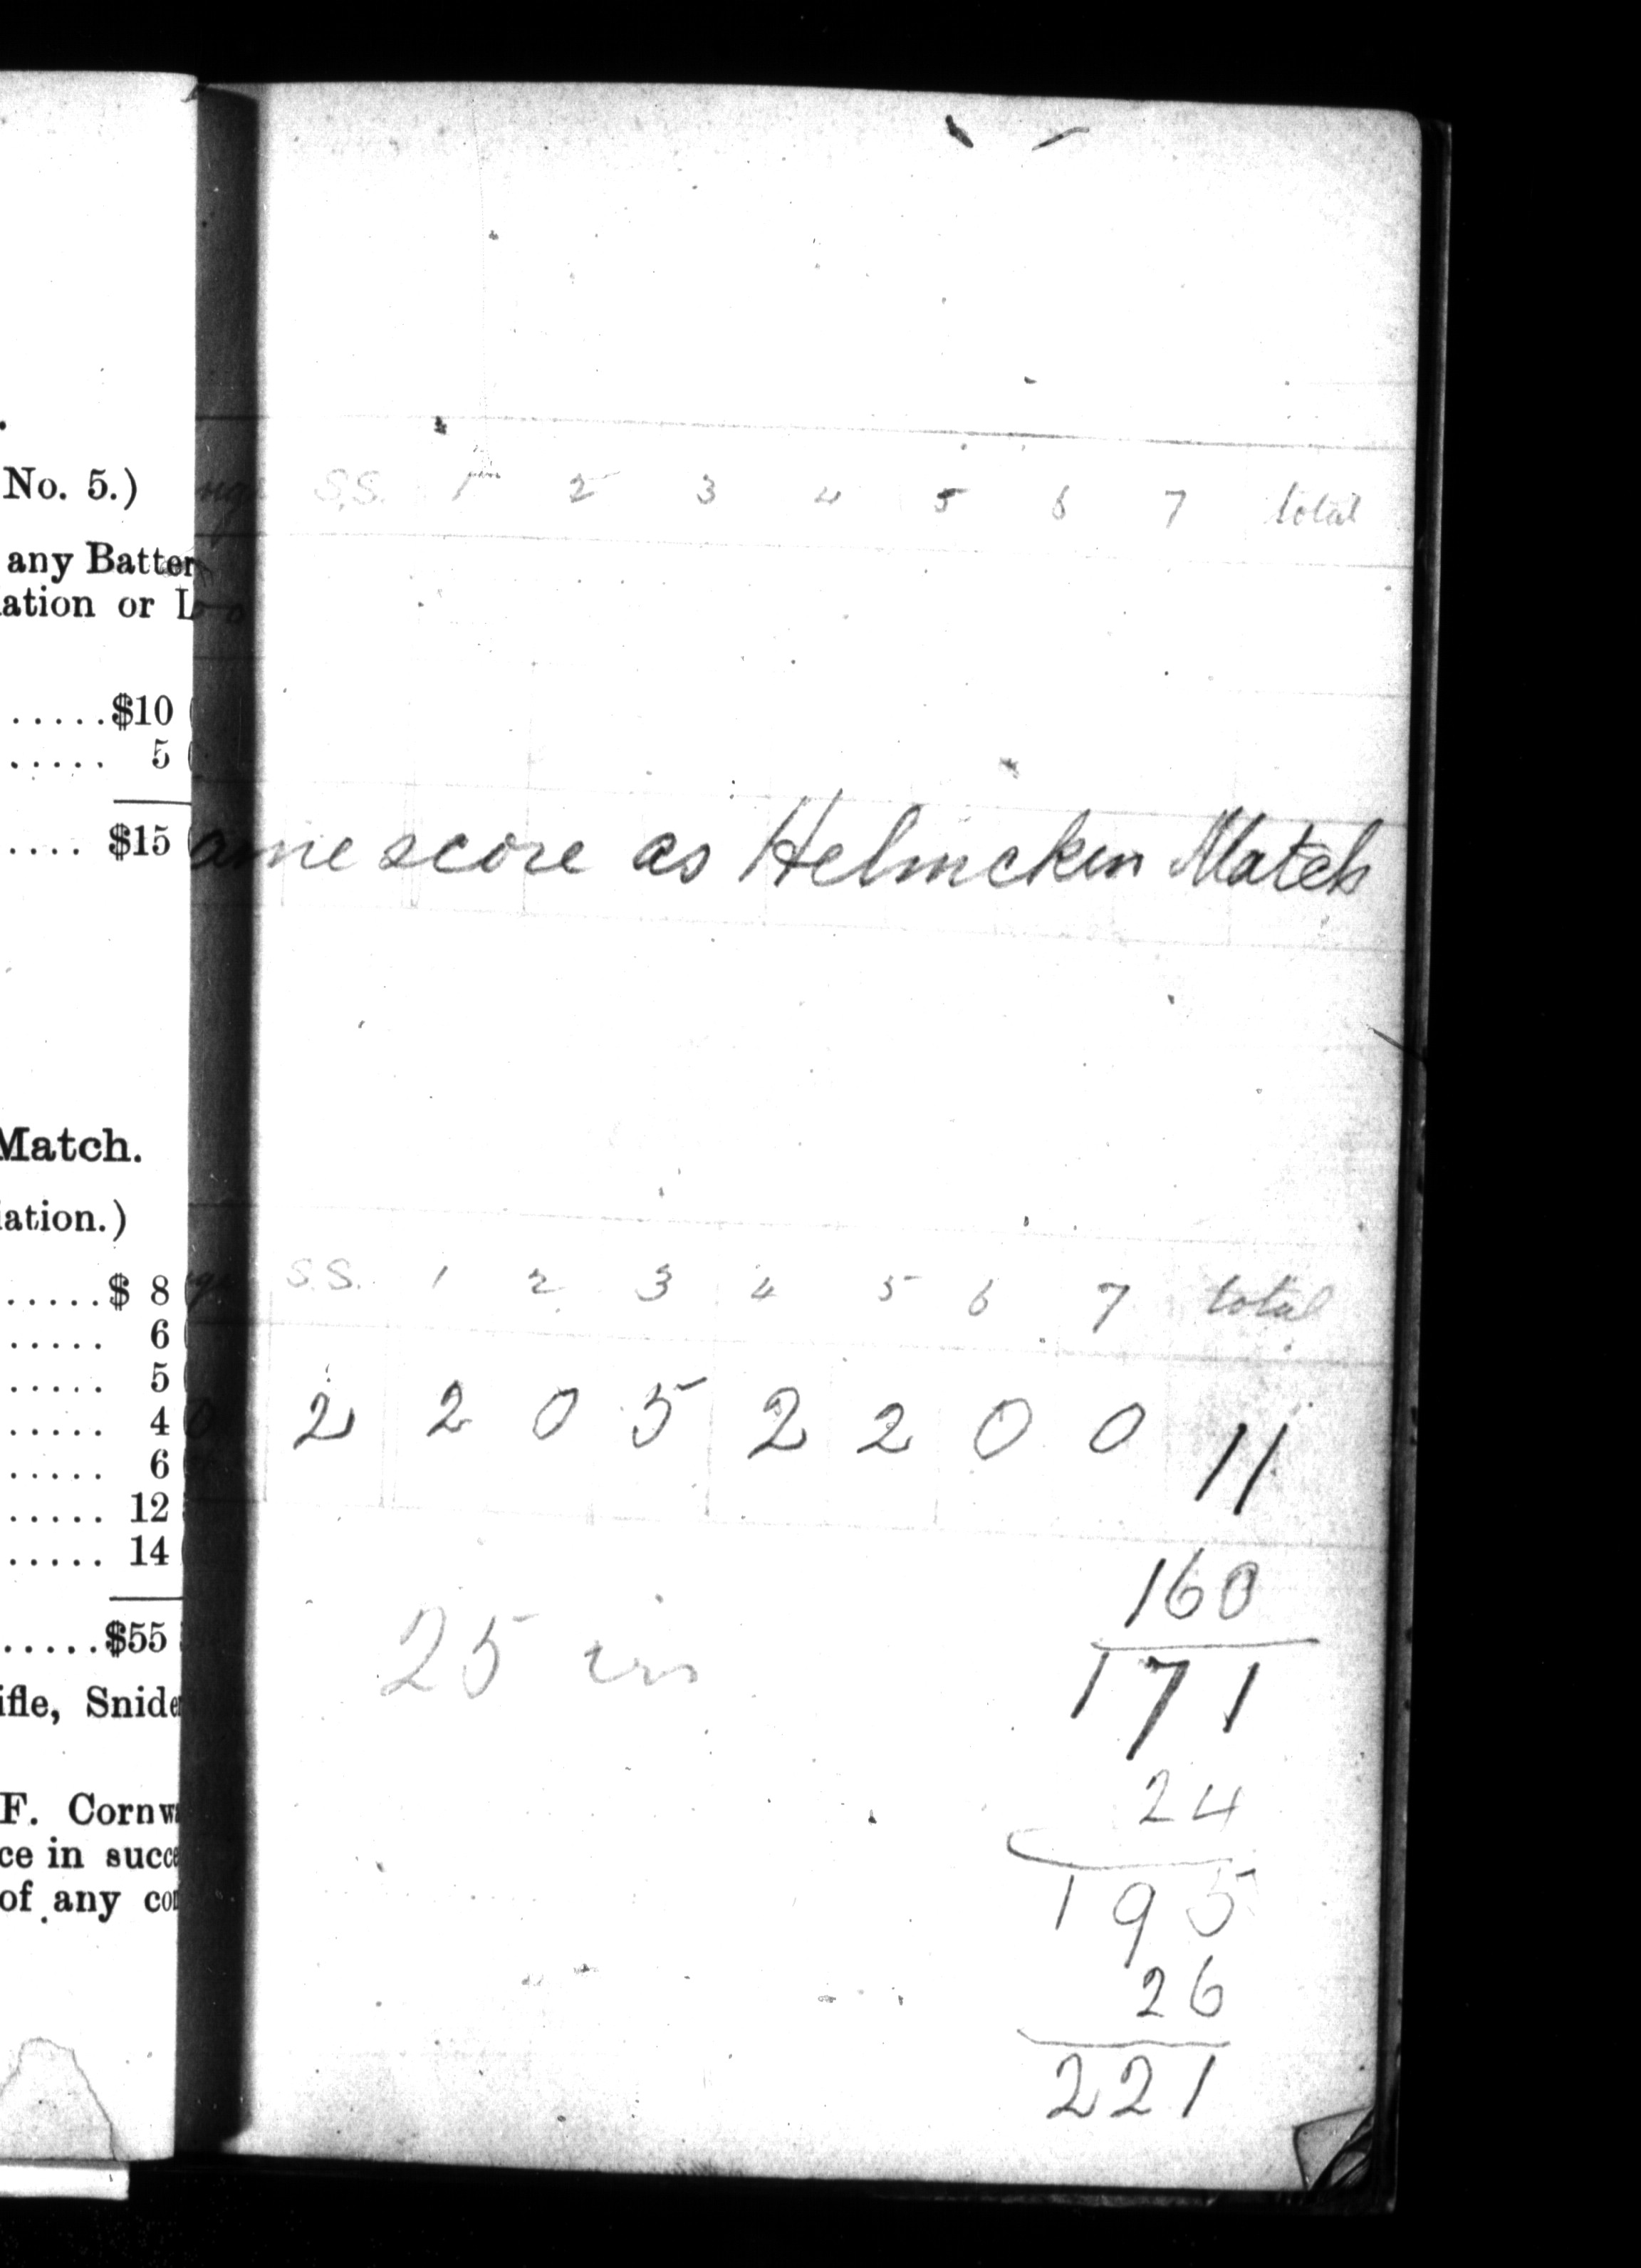 No. 5.)
any Batter
ation or
.....$10
..... 5
.... $15
Match.
iation.)
.....$ 8
..... 6
..... 5
..... 4
..... 6
..... 12
..... 14
.....$55
ifle, Snide
F. Cornw
ce in succe
of any con
S.S. 1 2 3 4 5 6 7 total
ame score as Helmcken Match
S.S. 1 2 3 4 5 6 7 total
2 2 0 5 2 2 0 0 11
160
25 in
171
24
195
26
221